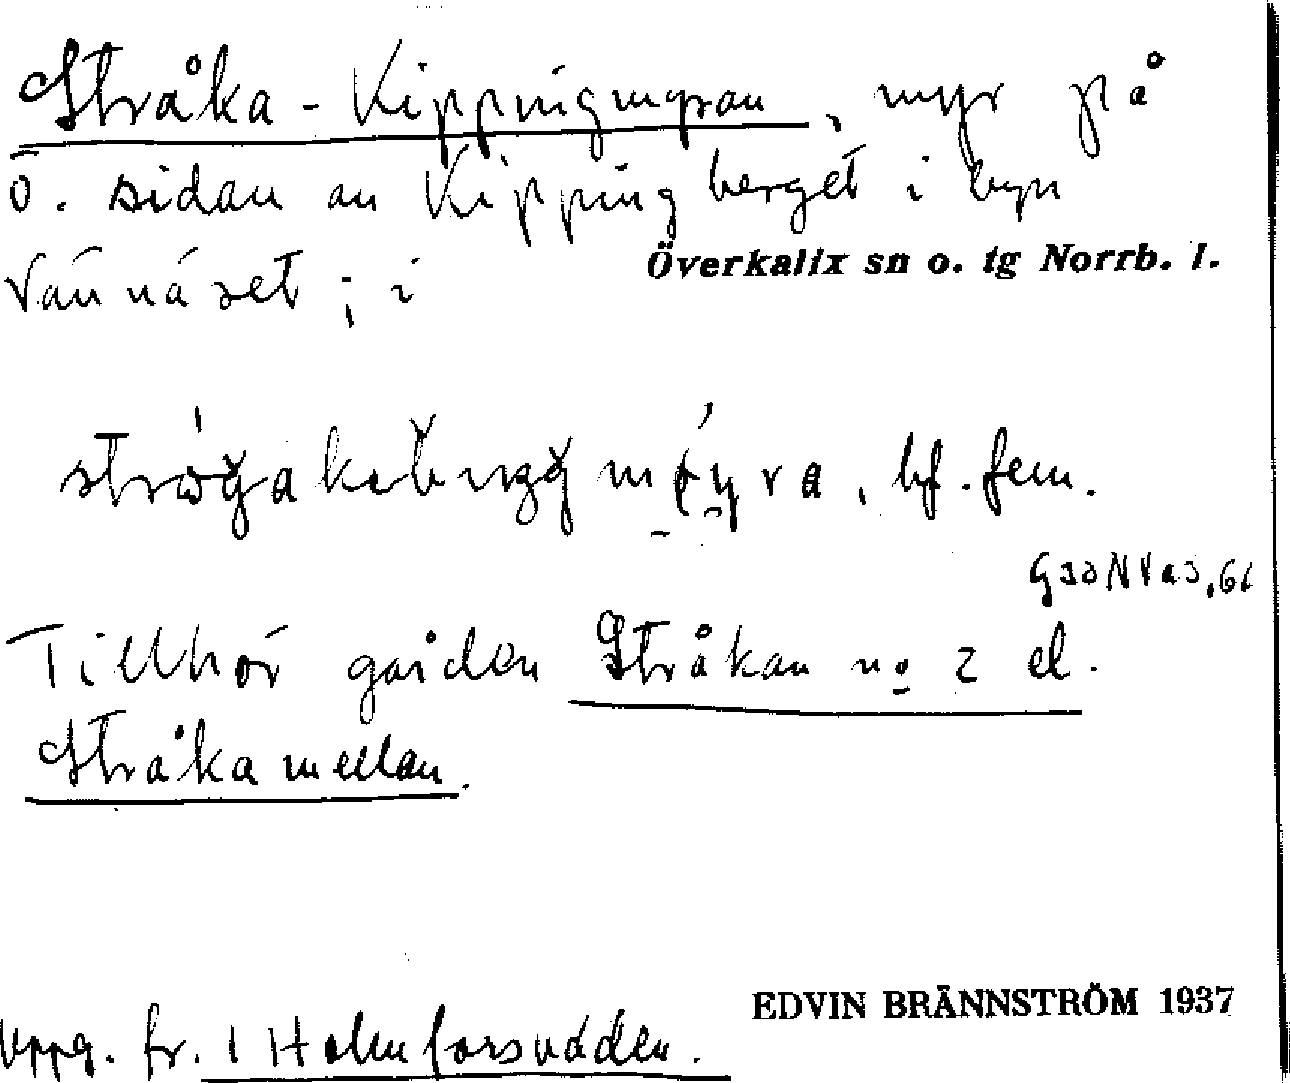 Stråka-Kippingmyran, myr på
ö. sidan av Kippingberget i byn
Vännäset; i
Överkalix sn o. tg Norrb. l.
bf. fem.
Tillhör gården Stråkan no 2 el.
Stråkamellan.
EDVIN BRÄNNSTRÖM 1937
Uppg. fr. i Holmforsudden.